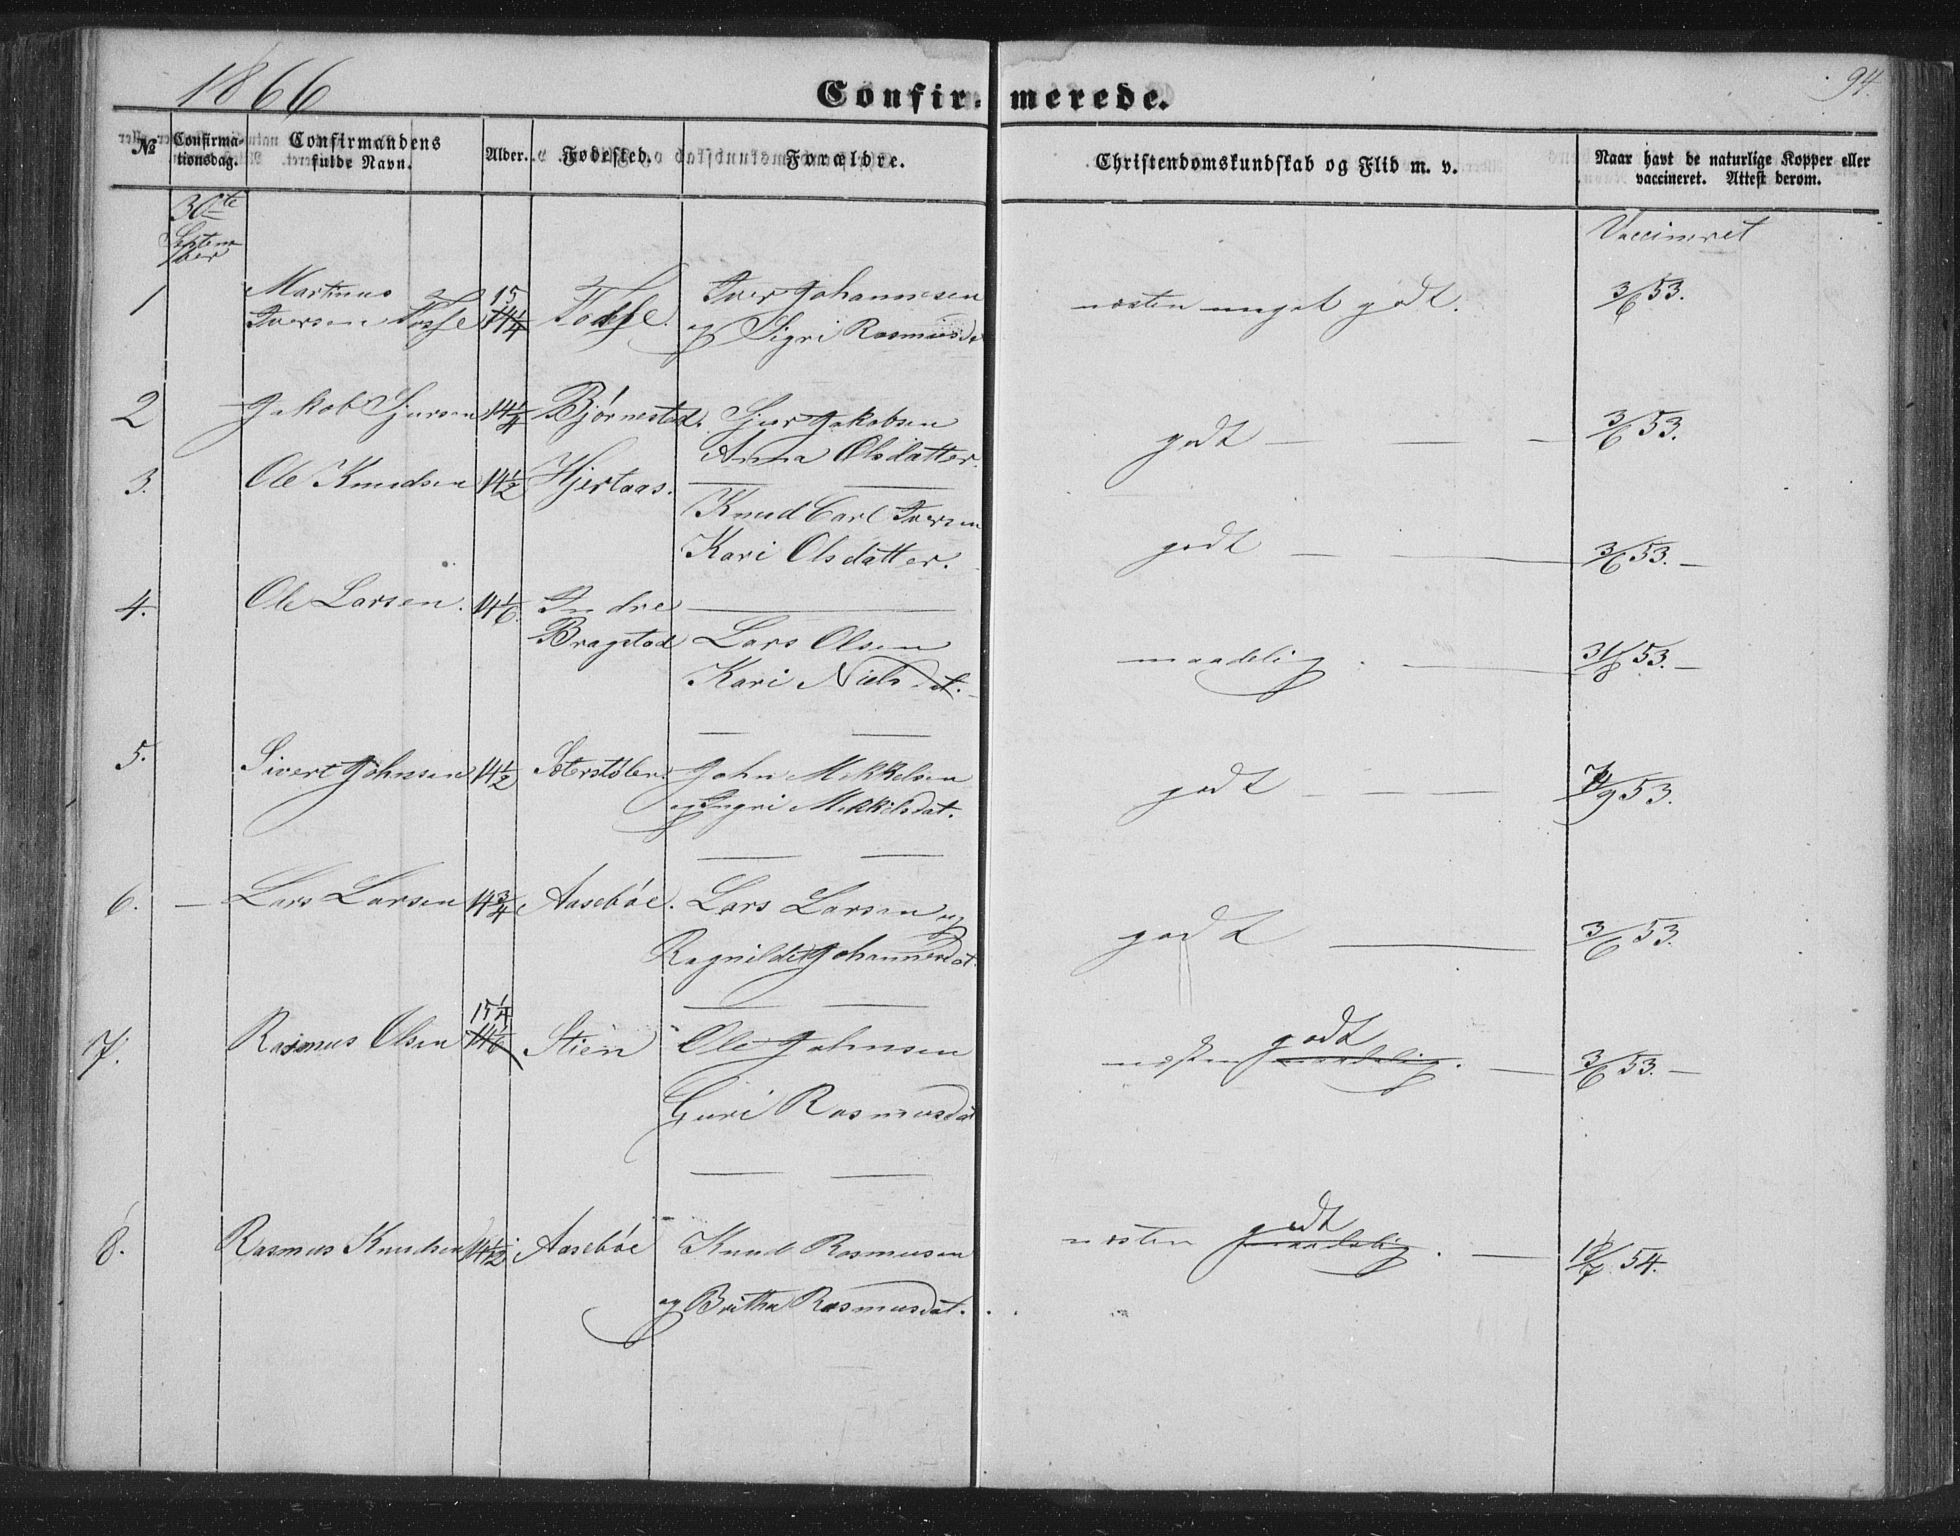 1866
Confirmerede.
94
№
Confirmationsdag.
Confirmandens fulde Navn.
Alder.
Fødested.
Forældre.
Christendomskundskab og Flid m. v.
Naar havt de naturlige Kopper eller
vaccineret. Attest derom.
30te
September
Vaccineret
1 Martinus 15 Fosse. Iver Johannesen næsten meget godt. 3/6 53.
Iversen Fosse 14 1/4 og Sigri Rasmusd
2 Jakob Sjursen 14 1/4 Bjørnestad. Sjur Jakobsen godt — — — 3/6 53.
Anna Olsdatter.
3. Ole Knudsen 14 1/2 Hjertaas. — —
Knud Carl Iversen godt — — 3/6 53. —
Kari Olsdatter.
4. Ole Larsen. 14 1/6. Indre —
Bragstad Lars Olsen maadelig. — 31/8 53. —
Kari Nielsdt.
— —
5. Sivert Johnsen 14 1/2 John Mikkelsen godt — — — /9 53.
og Ingri Mikkelsdat.
— —
6. — Lars Larsen 14 3/4 Aasebøe. Lars Larsen og godt — 3/6 53.
Ragnilde Johannesdat.
— —
15 1/4
7. Rasmus Olsen 14 1/6 Stien Ole Johnsen godt
næsten maadelig. — 3/6 53. —
Guri Rasmusdat
— —
8. Rasmus Knudsen 14 1/2 Aasebøe Knud Rasmusen godt
næsten maadelig. — 18/7. 54.
og Britha Rasmusdat.